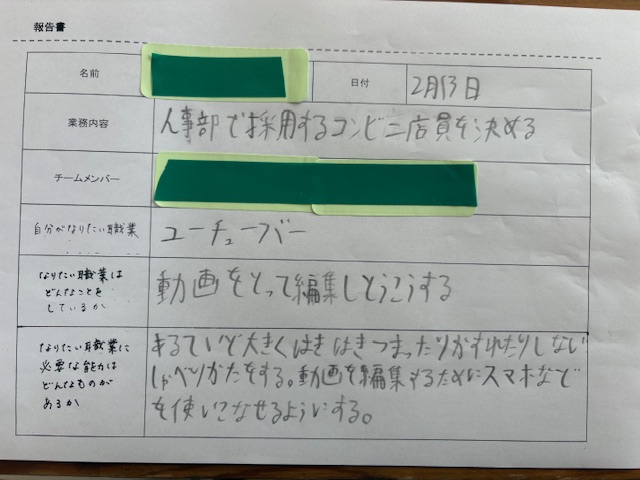 報告書
名前
日付
2月13日
業務内容
人事部で採用するコンビニ店員を決める
チームメンバー
自分がなりたい職業
ユーチューバー
なりたい職業は
どんなことを
しているか
動画をとって編集しとうこうする
なりたい職業に
必要な能力は
どんなものが
あるか
あるていど大きくはきはきつまったりかすれたりしない
しゃべりかたをする。動画を編集するためにスマホなど
を使いこなせるようにする。